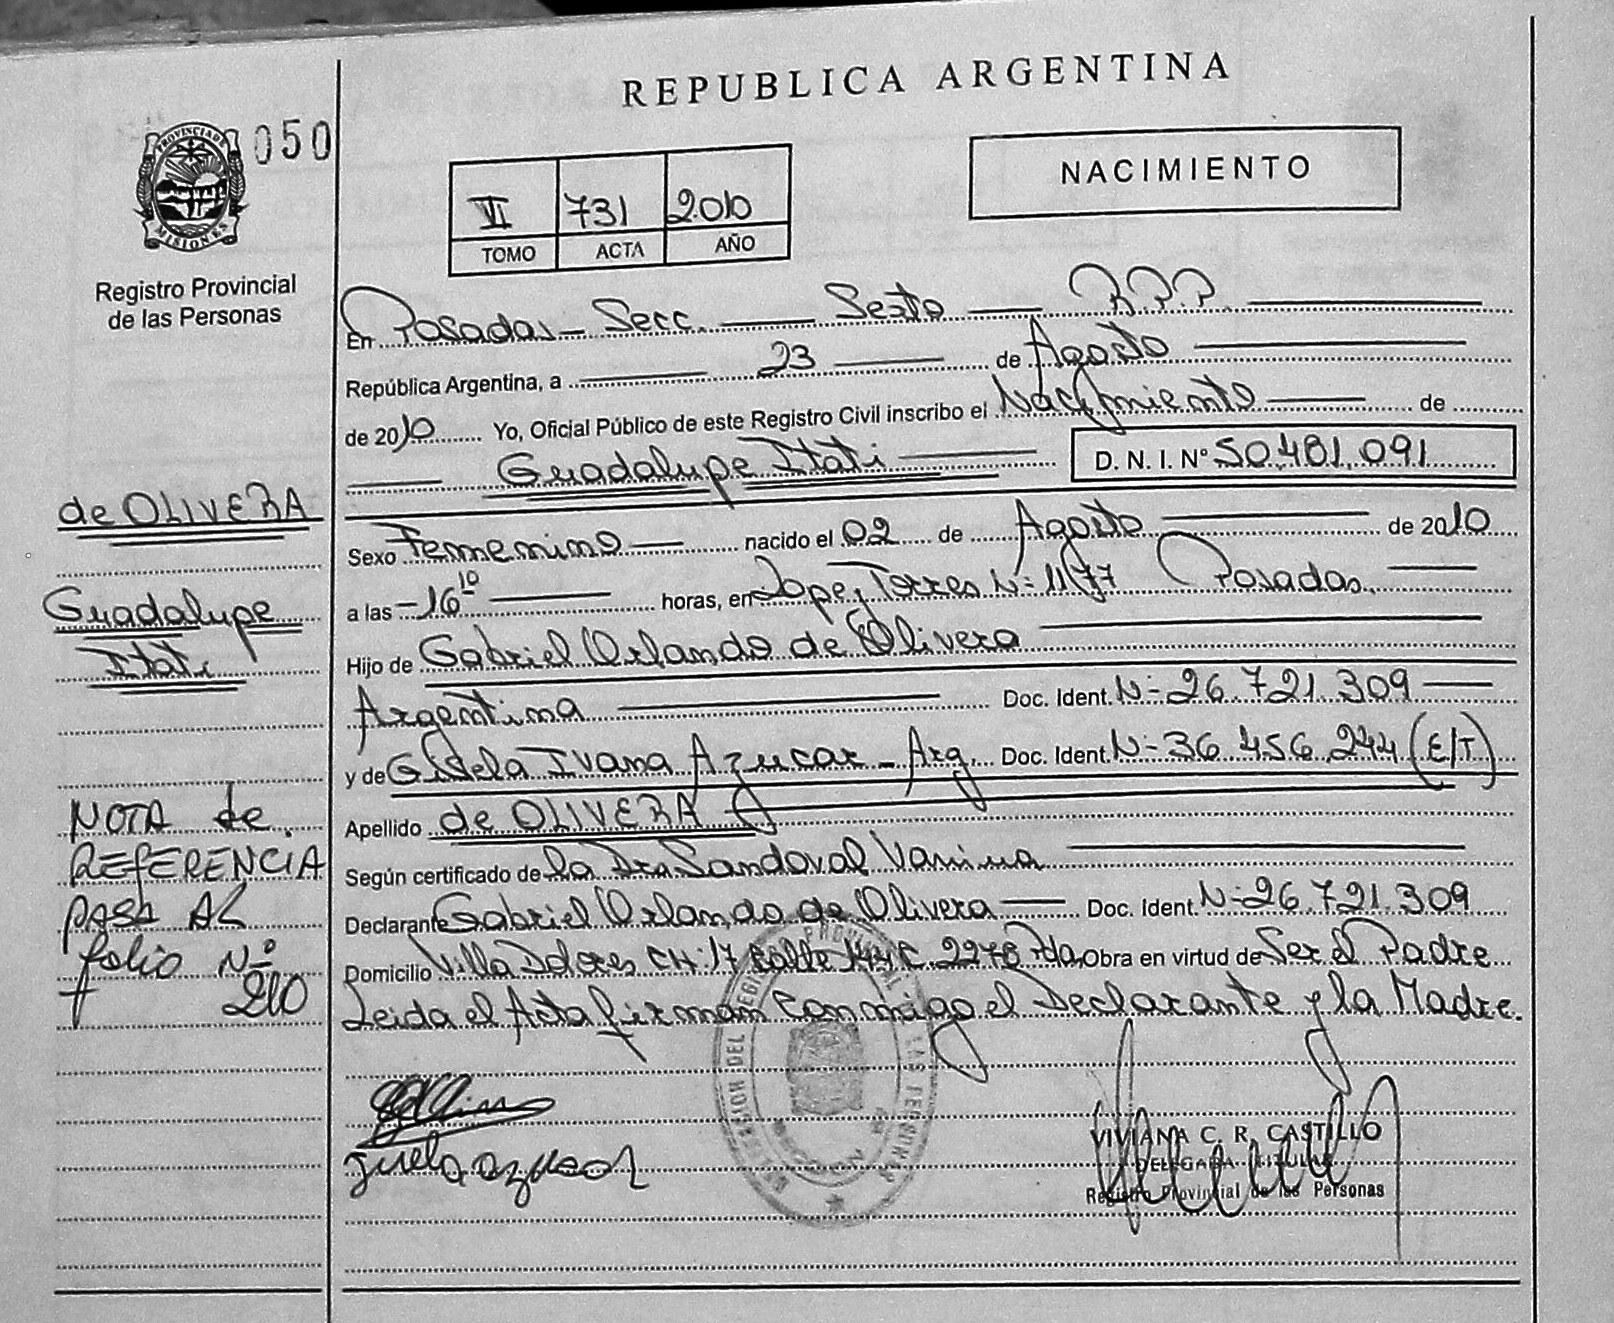 REPUBLICA ARGENTINA
050
PROVINCIA DE
MISIONES
Registro Provincial
de las Personas
VI 731 2010
TOMO ACTA AÑO
NACIMIENTO
En Posadas - Secc. Sexta R.P.P.
República Argentina, a 23 de Agosto
de 2010 Yo, Oficial Público de este Registro Civil inscribo el Nacimiento de
Guadalupe Itati D. N. I. N° 50.481.091
de OLIVERA
Guadalupe
Itati
Sexo Femenino nacido el 02 de Agosto de 2010
a las 16 10 horas, en Lopez Torres N- 1177 Posadas.
Hijo de Gabriel Orlando de Olivera
Argentina Doc. Ident. N- 26.721.309
y de Gisela Ivana Azucar - Arg. Doc. Ident. N- 36.456.244 (E/T)
Apellido de OLIVERA
Según certificado de la Dra Sandoval Vanina
Declarante Gabriel Orlando de Olivera Doc. Ident. N- 26.721.309
Domicilio Villa Dolores CH:17 Calle 144 C. 2278 Pda, Obra en virtud de Ser el Padre
Leida el Acta firman conmigo el Declarante y la Madre.
NOTA de
REFERENCIA
PASA AL
folio N°
210
VIVIANA C. R. CASTILLO
DELEGADA TITULAR
Registro Provincial de las Personas